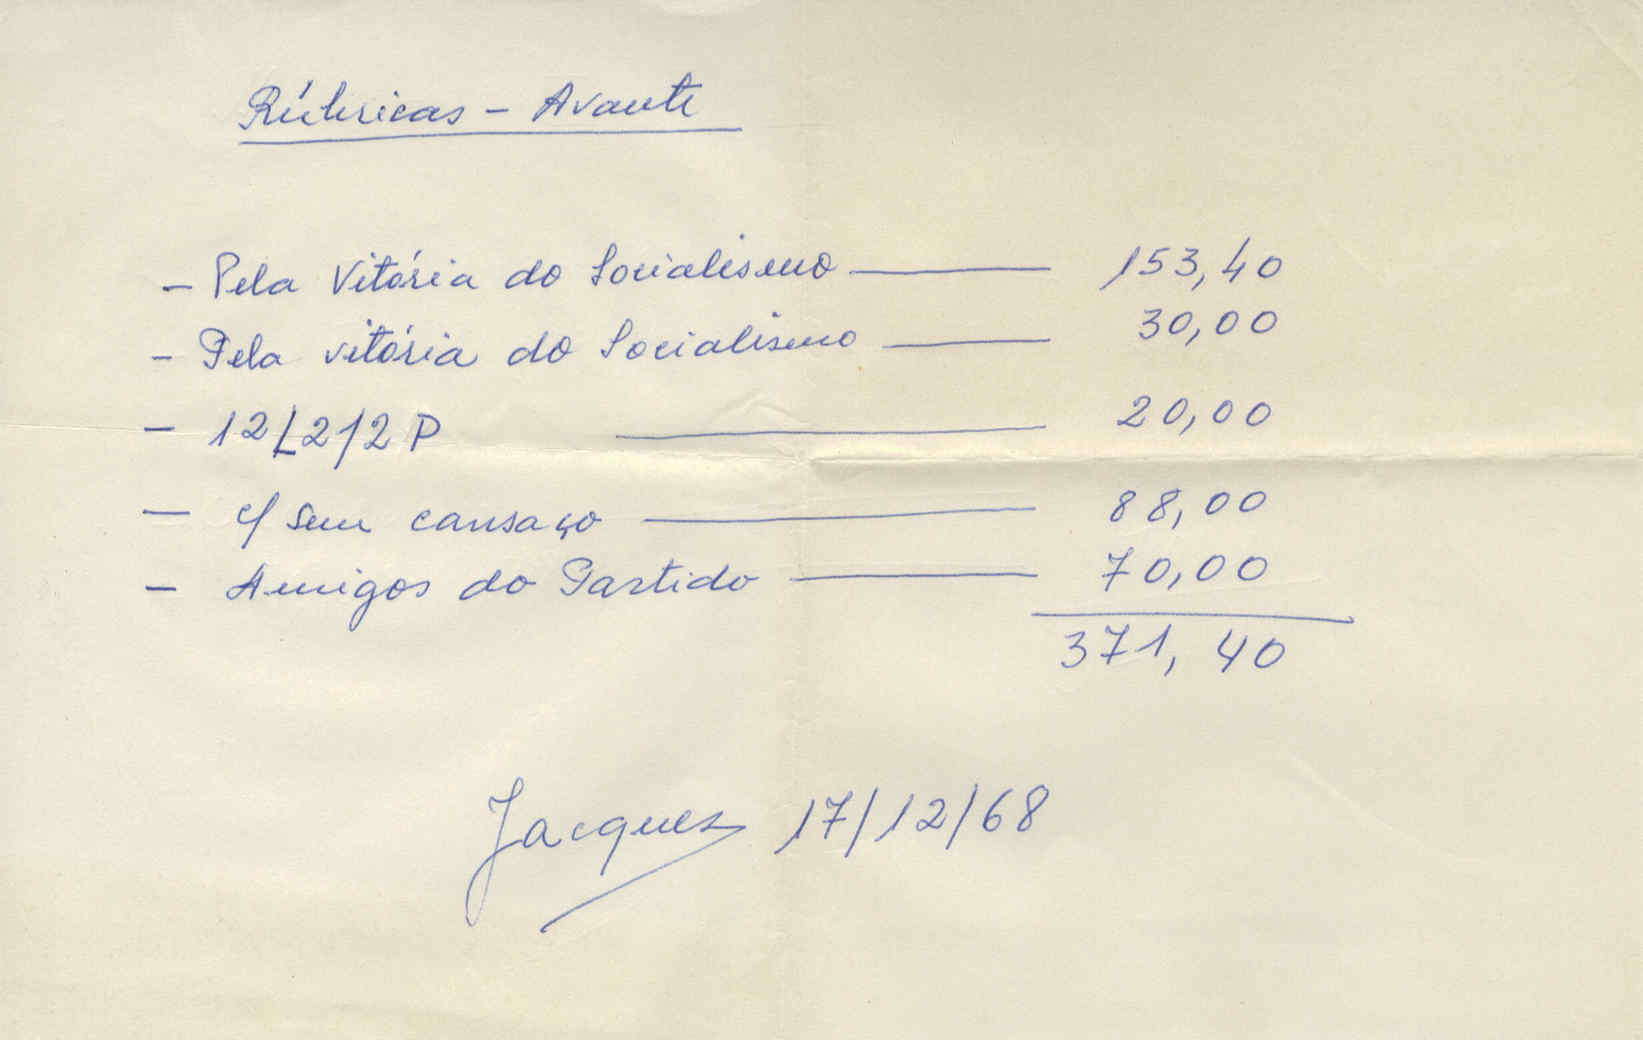 Rúbricas - Avante
- Pela Vitória do Socialismo — 153,40
- Pela vitória do Socialismo — 30,00
- 12L2/2P — 20,00
- c/ sem cansaço — 88,00
- Amigos do Partido — 70,00
371,40
Jacques 17/12/68